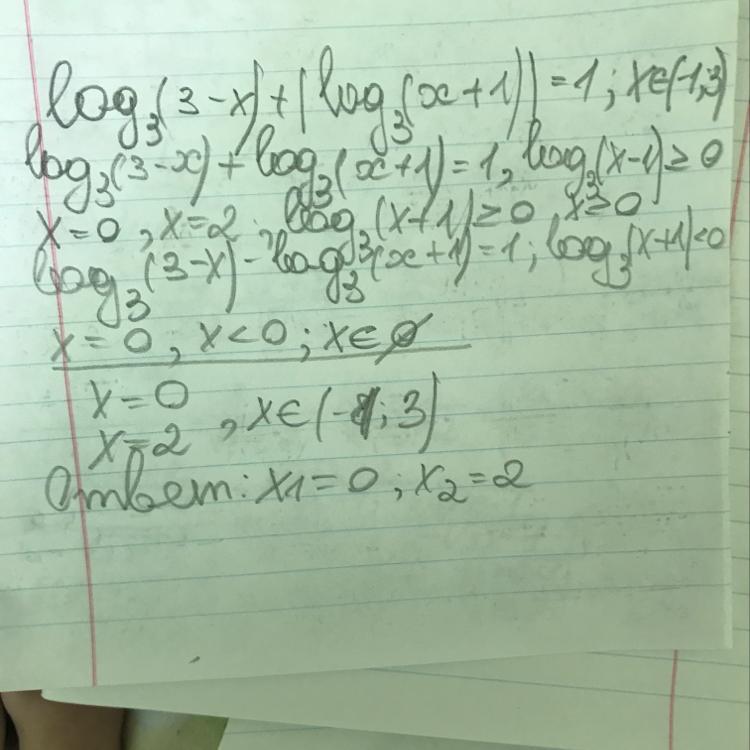 log₃(3-x)+|log₃(x+1)|=1; x∈(-1;3)
log₃(3-x)+log₃(x+1)=1, log₃(x-1)≥0
x=0, x=2; log₃(x+1)≥0, x≥0
log₃(3-x)-log₃(x+1)=1; log₃(x+1)<0
x=0, x<0; x∈∅
x=0
x=2, x∈(-1;3)
Ответ: x1=0; x2=2